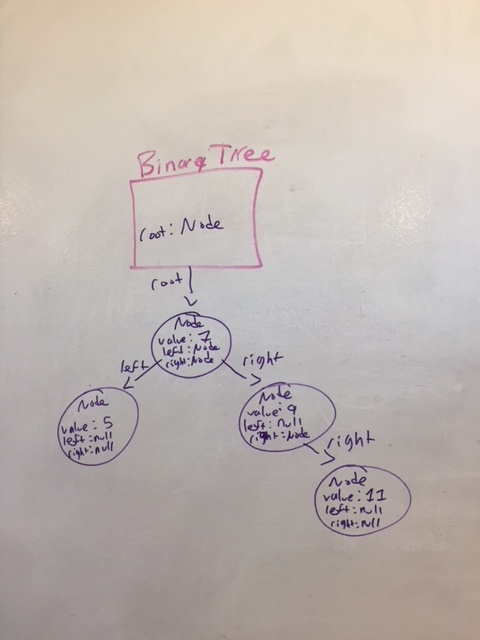 Binary Tree
root: Node
root
Node
value: 7
left: Node
right: Node
left
right
Node
value: 5
left: null
right: null
Node
value: 9
left: null
right: Node
right
Node
value: 11
left: null
right: null